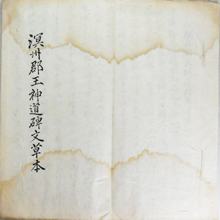 溟州郡王神道碑文草本